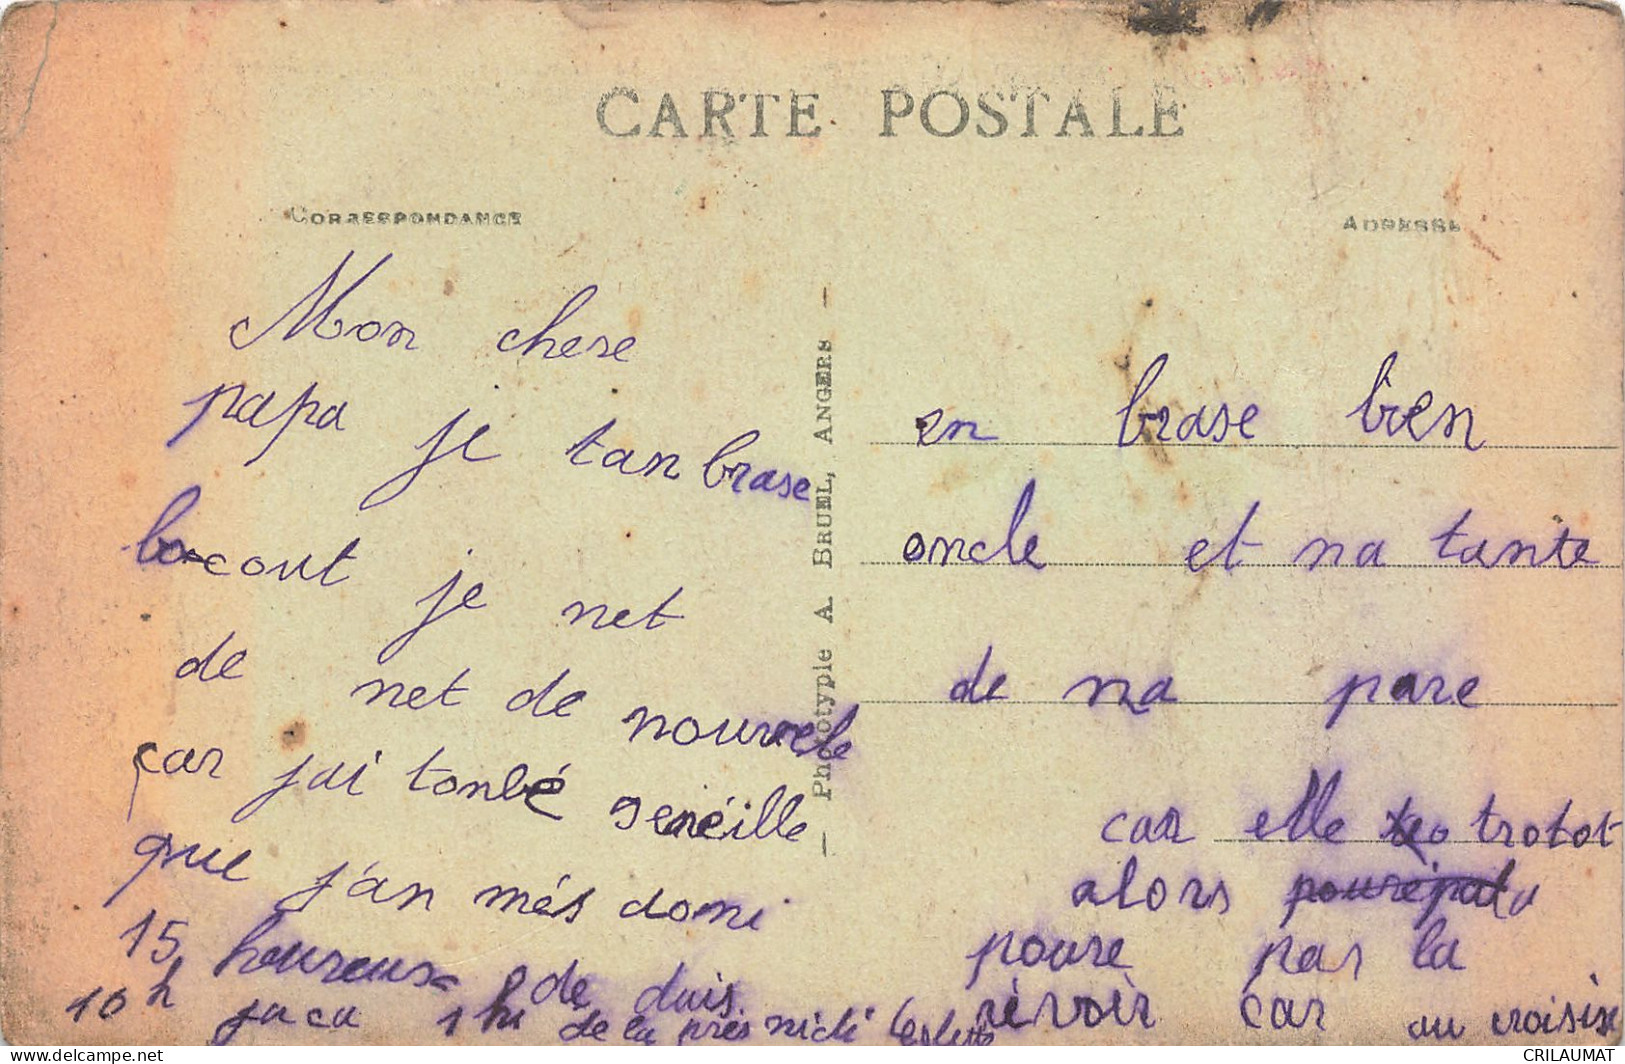 CARTE POSTALE
CORRESPONDANCE
ADRESSE
Mon chere
papa je tan brase
bocout je net
de net de nouvele
car jai tonbé
que j'an més domi
15 heureux de duis
10 h jaca 1 hi de la près midi
Phototypie A. BRUEL, ANGERS
en brase bien
oncle et na tante
de na pare
car elle trotot
alors
poure par la
révoir car au croisix
CRILAUMAT